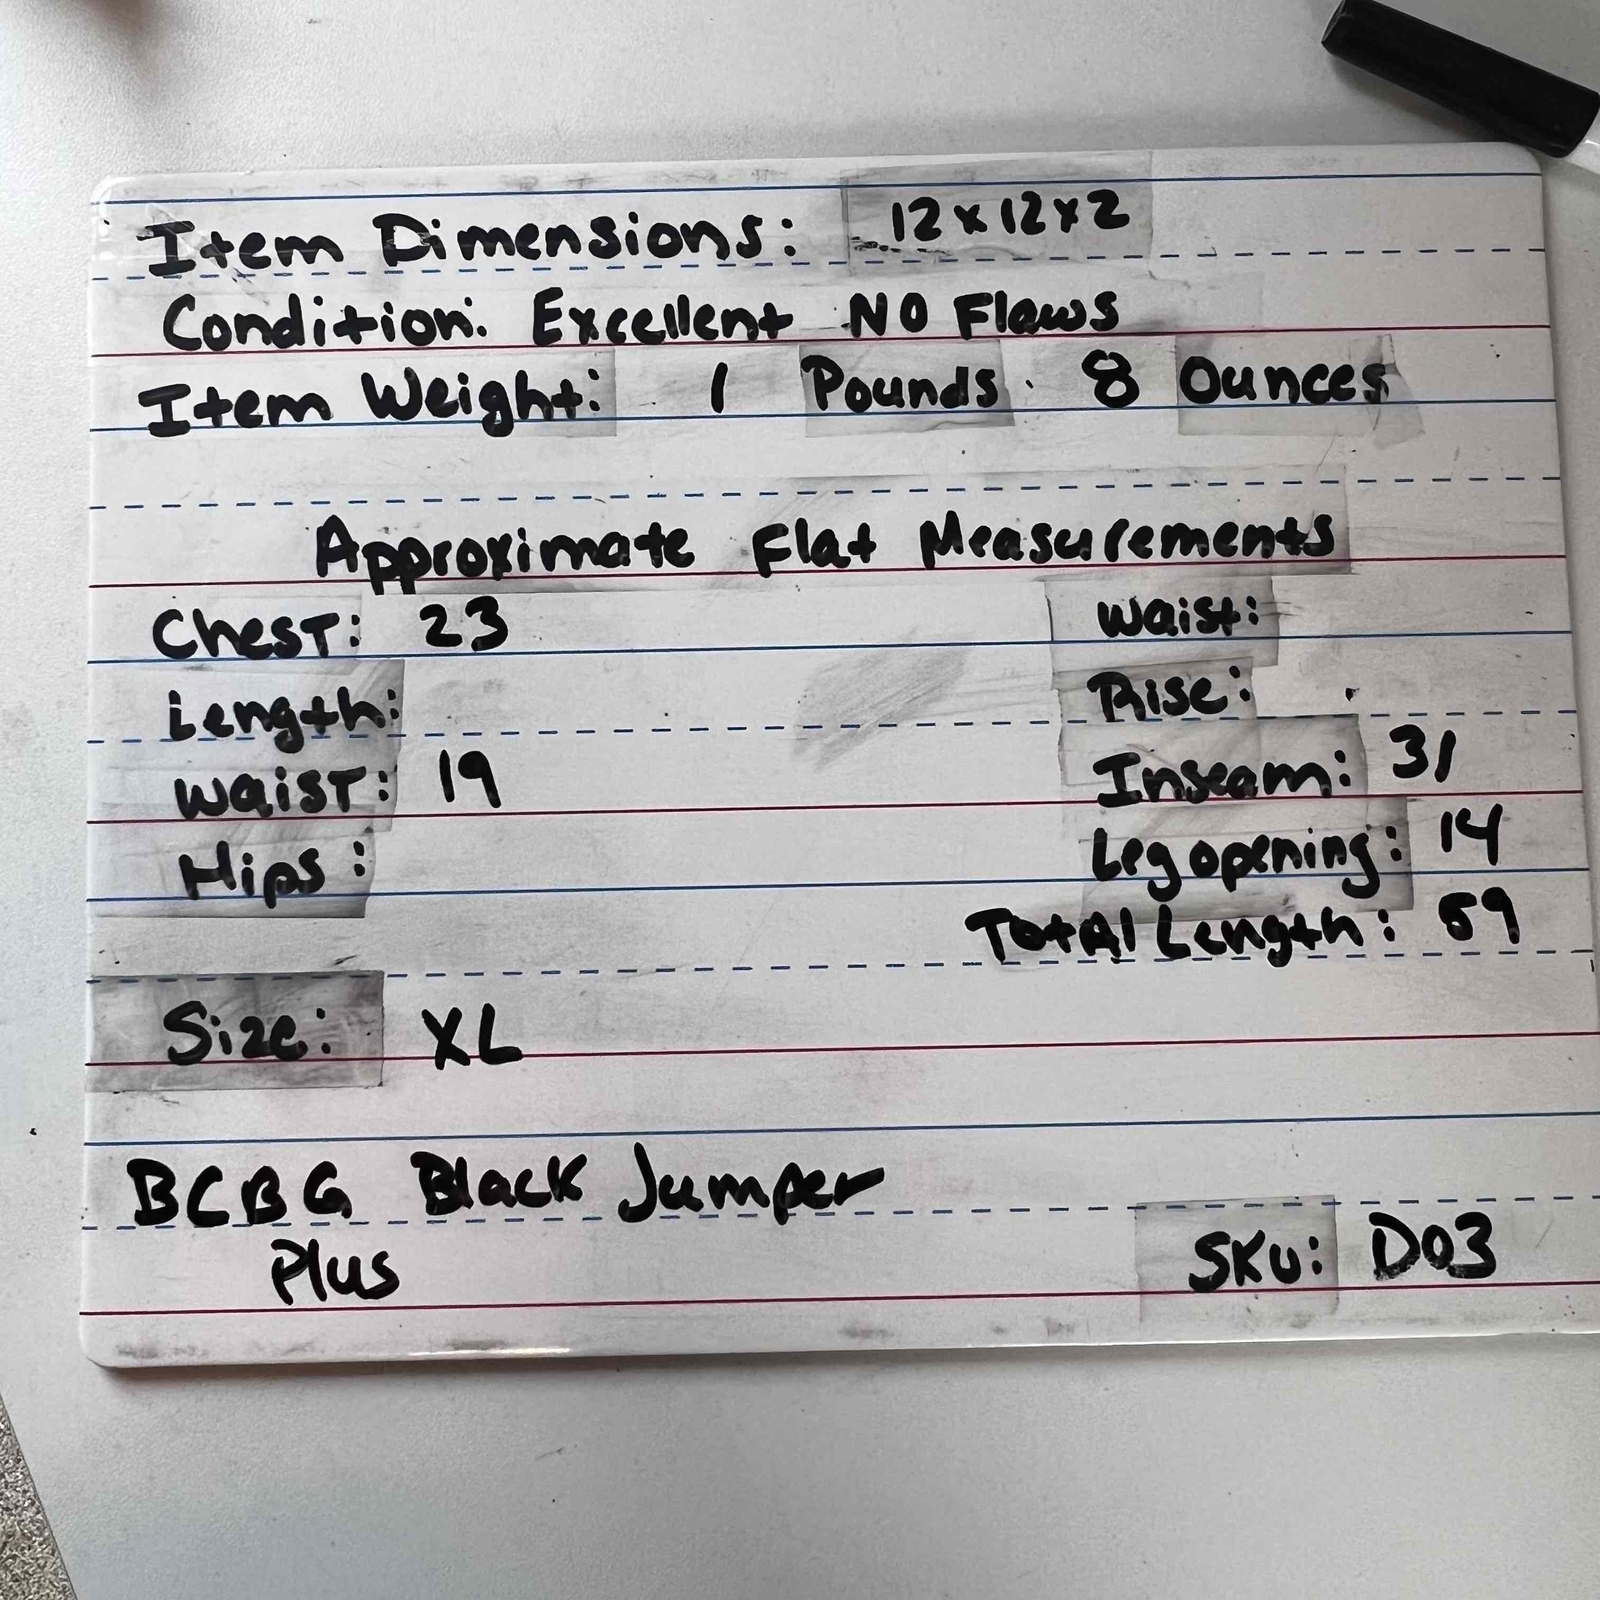 Item Dimensions: 12x12x2
Condition: Excellent NO Flaws
Item Weight: 1 Pounds 8 Ounces
Approximate Flat Measurements
Chest: 23
Waist:
Length:
Rise:
Waist: 19
Inseam: 31
Hips:
Leg opening: 14
Total Length: 59
Size: XL
BCBG Black Jumper
Plus
SKU: D03